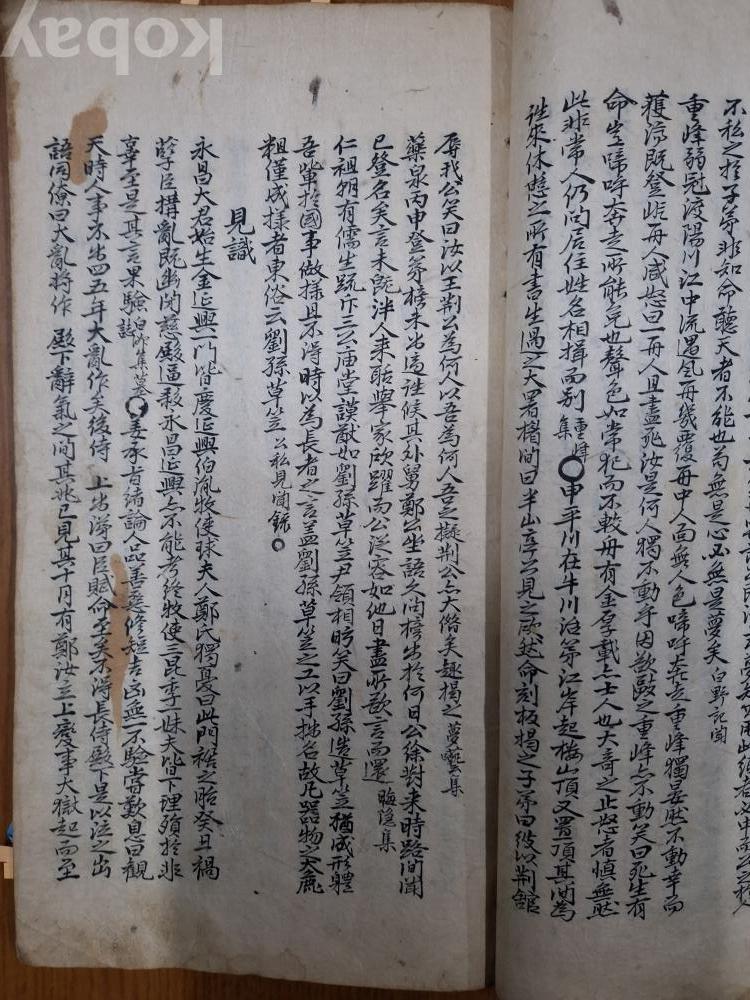 不私之於子弟非如命聽天者不能也苟無是心必無是夢矣 白野記聞
重峰弱冠渡陽川江中流遇風舟幾覆舟中人面無人色啼呼奔走重峰獨晏然不動幸而
獲濟既登岸舟人咸怒曰一舟人且盡死汝是何人獨不動乎因欲敺之重峰亦不動笑曰死生有
命豈啼呼奔走所能免也聲色如常犯而不較舟有金厚載亦士人也大奇之止怒者慎無然
此非常人仍問居住姓名相揖而別 重峰集 申平川在牛川泊第江岸起梅山頂又置頂其間為
往來休憩之所有書生過之大署楣間曰半山亭公見之欣然命刻板揭之子弟曰彼以荊館
辱我公笑曰汝以王荊公為何人以吾為何人吾之擬荊公亦大僭矣趣揭之 夢囈集
藥泉丙申登第榜未出適往候其外舅鄭公坐語久問榜出於何日公徐對來時路間聞
已登名矣言未旣泮人來聒擧家欣躍而公從容如他日盡所欲言而還 晦隱集
仁祖朝有儒生疏斥三公庙堂謨猷如劉孫草笠尹領相昉笑曰劉孫造草笠猶成形體
吾輩於國事做樣且不得時以為長者之言盖劉孫草笠之工以手拙名故凡器物以突麁
粗僅成樣者東俗云劉孫草笠 公私見聞錄
見識
永昌大君始生金延興一門皆慶延興伯胤牧使琜夫人鄭氏獨憂曰此門禍之胎癸丑禍
孽臣搆亂既幽閉慈殿逼殺永昌延興亦不能考終牧使三昆季妹夫皆下理殞於非
辜至是其言果驗 白沙集墓誌 姜承旨緖論人品善惡修短吉凶無一不驗嘗歎息曰觀
天時人事不出四五年大亂作矣後侍 上出涕曰臣賦命至矣不得長侍殿下是以泣之出
語同僚曰大亂將作 殿下辭氣之間其兆已見其十月有鄭汝立上變事大獄起而至
kobay